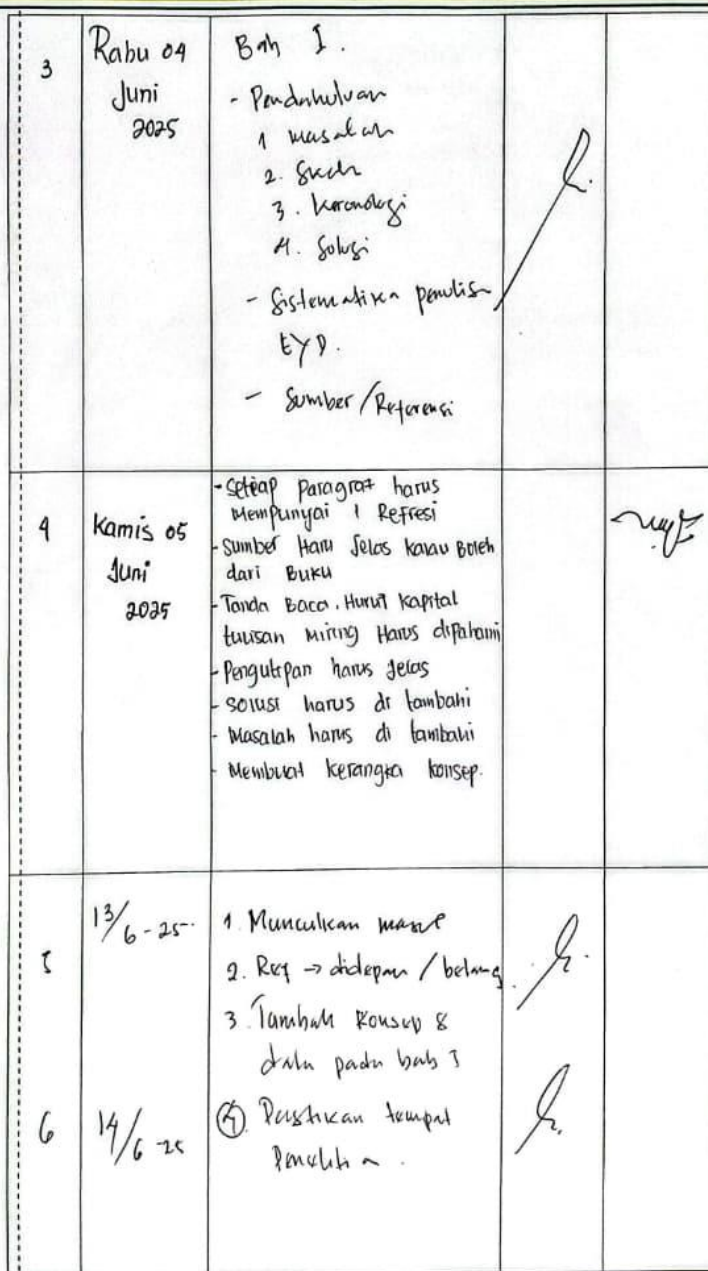 3
Rabu 04
Juni
2025
Bab I.
- Pendahuluan
1 masalah
2. Skala
3. Kronologi
4. Solusi
- Sistematika penulis
EYD.
- Sumber/Referensi
4
Kamis 05
Juni
2025
- Setiap Paragraf harus
Mempunyai 1 Refresi
- Sumber Haru Jelas kalau Boleh
dari Buku
- Tanda Baca, Huruf Kapital
tulisan Miring Harus dipahami
- Pengutipan harus Jelas
- Solusi harus di tambahi
- Masalah harus di tambahi
- Membuat kerangka konsep.
5
13/6-25.
1. Munculkan
2. Ref → didepan / belang
3. Tambah Konsep &
data pada bab I
6
14/6-25
④. Pastikan tempat
Penelitian.